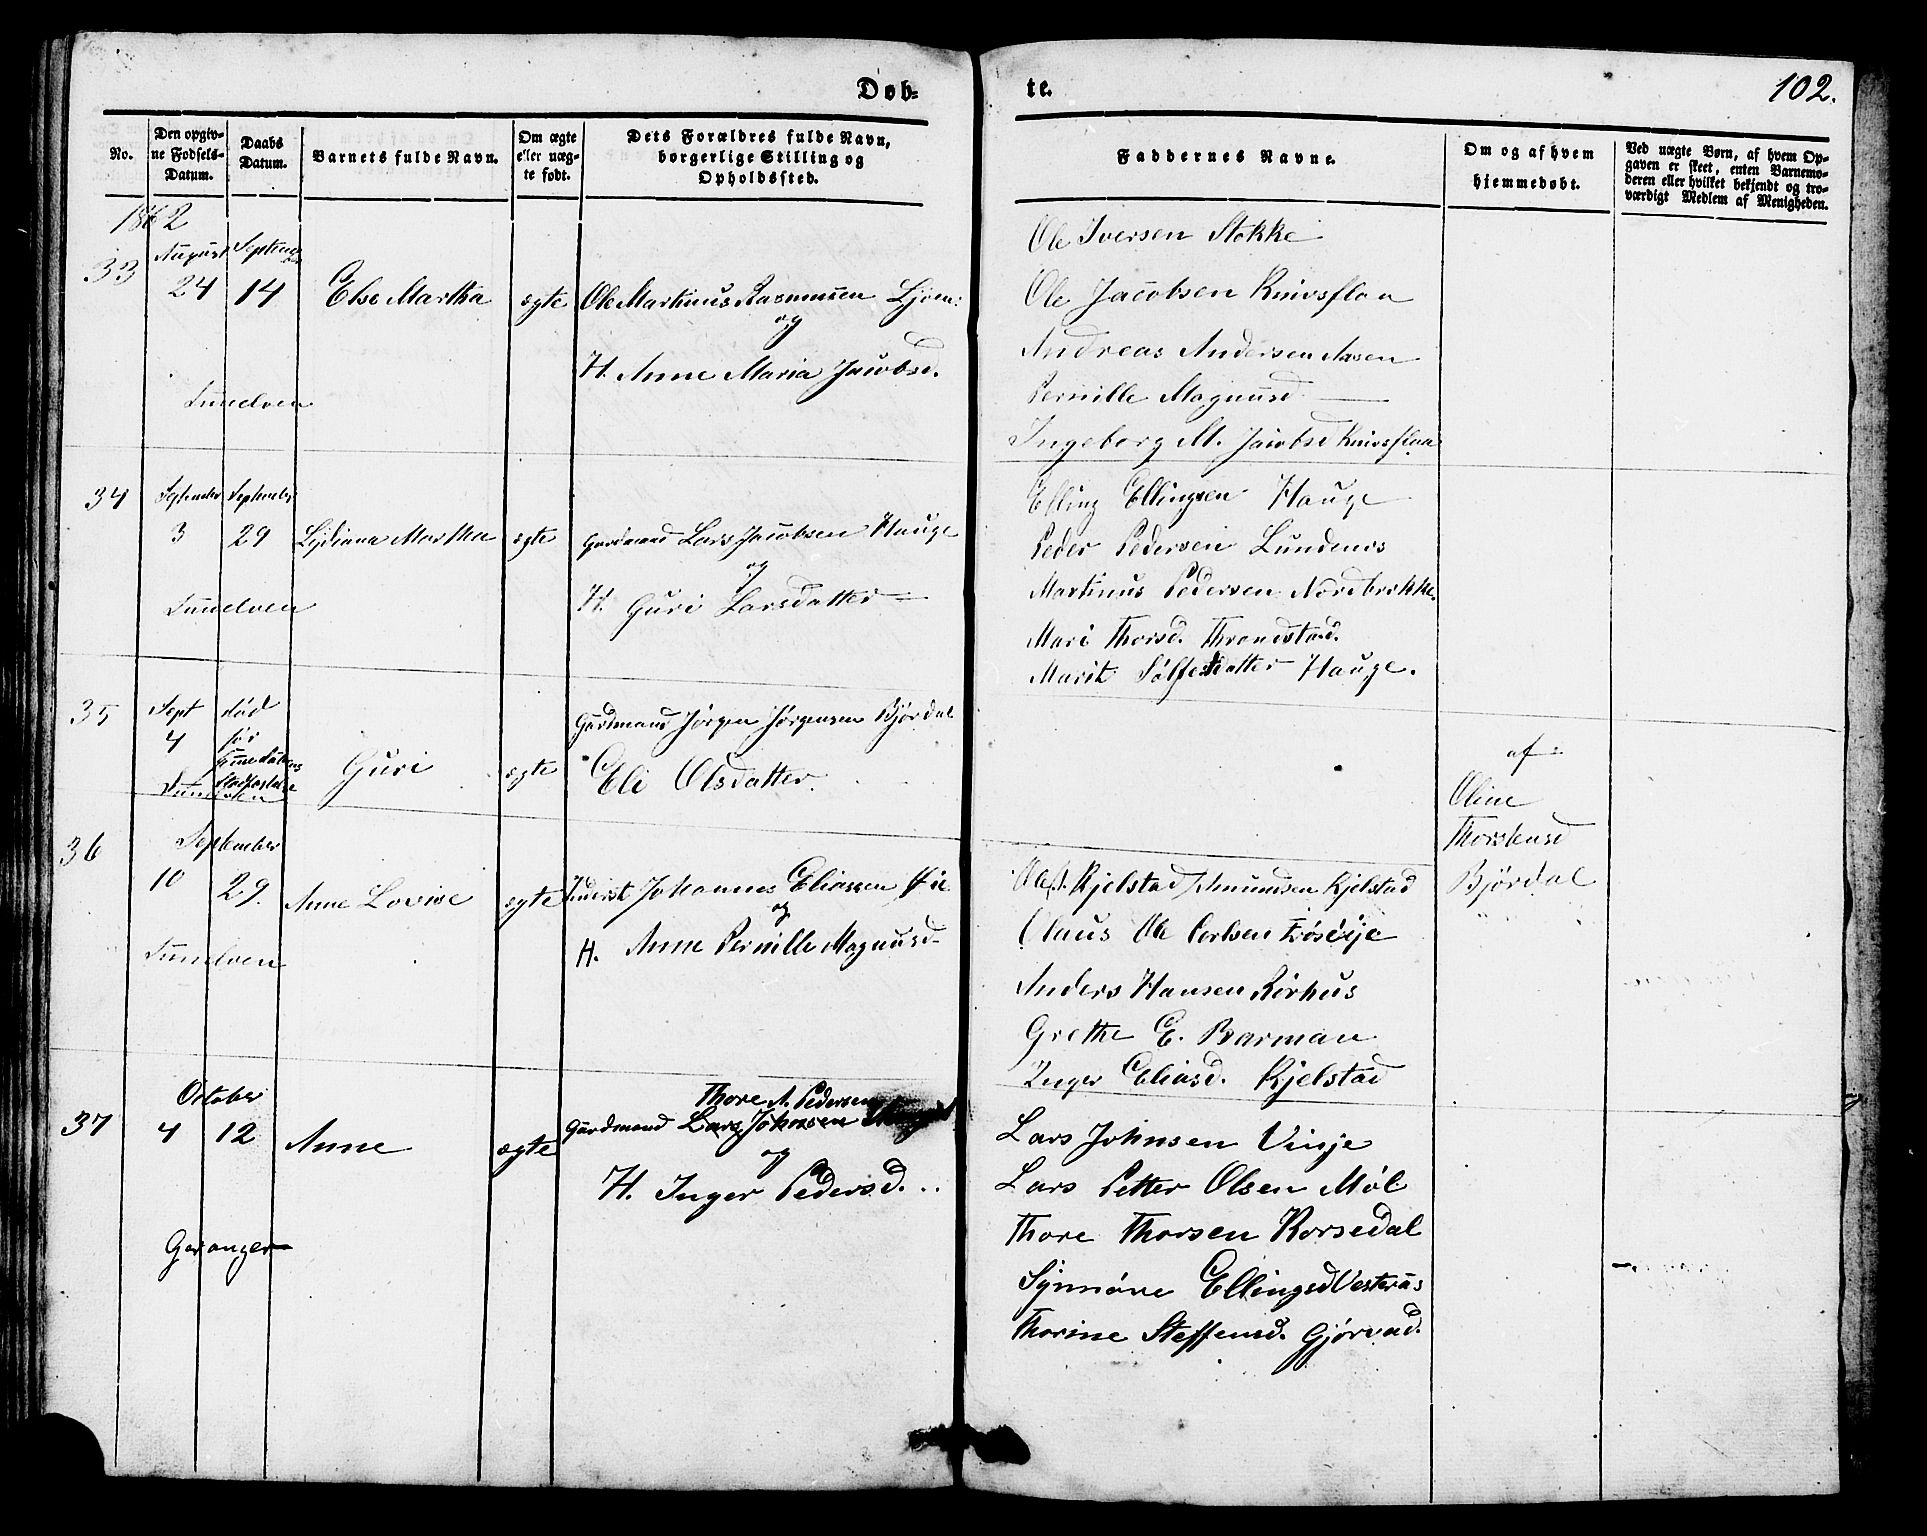 Døb-
te.
102.
No.
Den opgiv-
ne Fødsels-
Datum.
Daabs
Datum.
Barnets fulde Navn.
Om ægte
eller uæg-
te født.
Dets Forældres fulde Navn,
borgerlige Stilling og
Opholdssted.
Faddernes Navne.
Om og af hvem
hjemmedøbt.
Ved uægte Børn, af hvem Op-
gaven er skeet, enten Barnemo-
deren eller hvilket bekjendt og tro-
værdigt Medlem af Menigheden.
1862
33
August
24
September
14
Else Martha
ægte
Ole Martinus Rasmussen Ljøen
og
H. Anne Maria Jacobsd.
Sunelven
Ole Iversen Stokke
Ole Jacobsen Knivsflaa
Andreas Andersen Aasen
Pernille Magnusd —
Ingeborg M. Jacobsd Knivsflaa
34
September
3
September
29
Lydiana Martha
ægte
Gardmand Lars Jacobsen Hauge
og
H. Guri Larsdatter —
Sunelven
Elling Ellingsen Hauge
Peder Pedersen Lundenes
Martinus Pedersen Nordbrekke.
Mari Thorsd. Thrandstad.
Marit Sølfestdatter Hauge.
35
Sept
4
død
før
Guri
ægte
Gardmand Jørgen Jørgensen Bjørdal
Eli Olsdatter.
Sunelven
af
Oline
Thorstensd
Bjørdal
36
September
10
29.
Anne Lovise
ægte
Inderst Johannes Eliassen
og
H. Anne Pernille Magnusd
Sunelven
Ole A. Kjelstad Amundsen Kjelstad
Claus Ole Carlsen
Anders Hansen Kirhus
Grethe E. Barman
Inger Eliasd. Kjelstad
37
October
4
12
Anne
ægte
Thore A. Pedersen
Gardmand Lars Johnsen
og
H. Inger Pedersd. ..
Geranger
Lars Johnsen Vinje
Lars Petter Olsen Møl
Thore Thorsen Korsedal
Synnøve Ellingsd Vesteraas
Thorine Steffensd. Gjørvad.